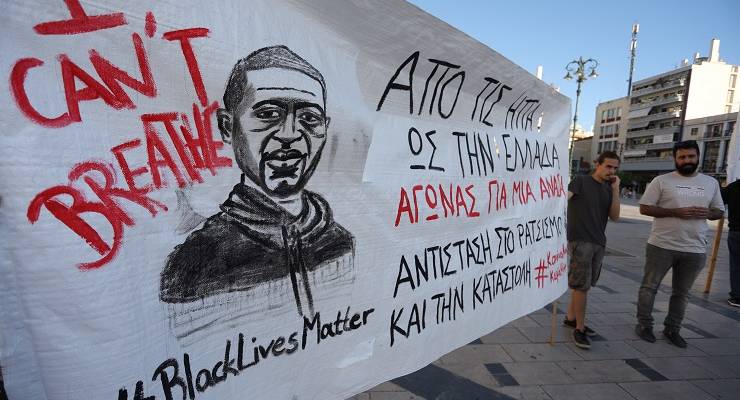 I
CAN'T
BREATHE
#BlackLivesMatter
ΑΠΟ ΤΙΣ ΗΠΑ
ΩΣ ΤΗΝ ΕΛΛΑΔΑ
ΑΓΩΝΑΣ ΓΙΑ ΜΙΑ ΑΝΑΣΑ
ΑΝΤΙΣΤΑΣΗ ΣΤΟ ΡΑΤΣΙΣΜΟ
ΚΑΙ ΤΗΝ ΚΑΤΑΣΤΟΛΗ